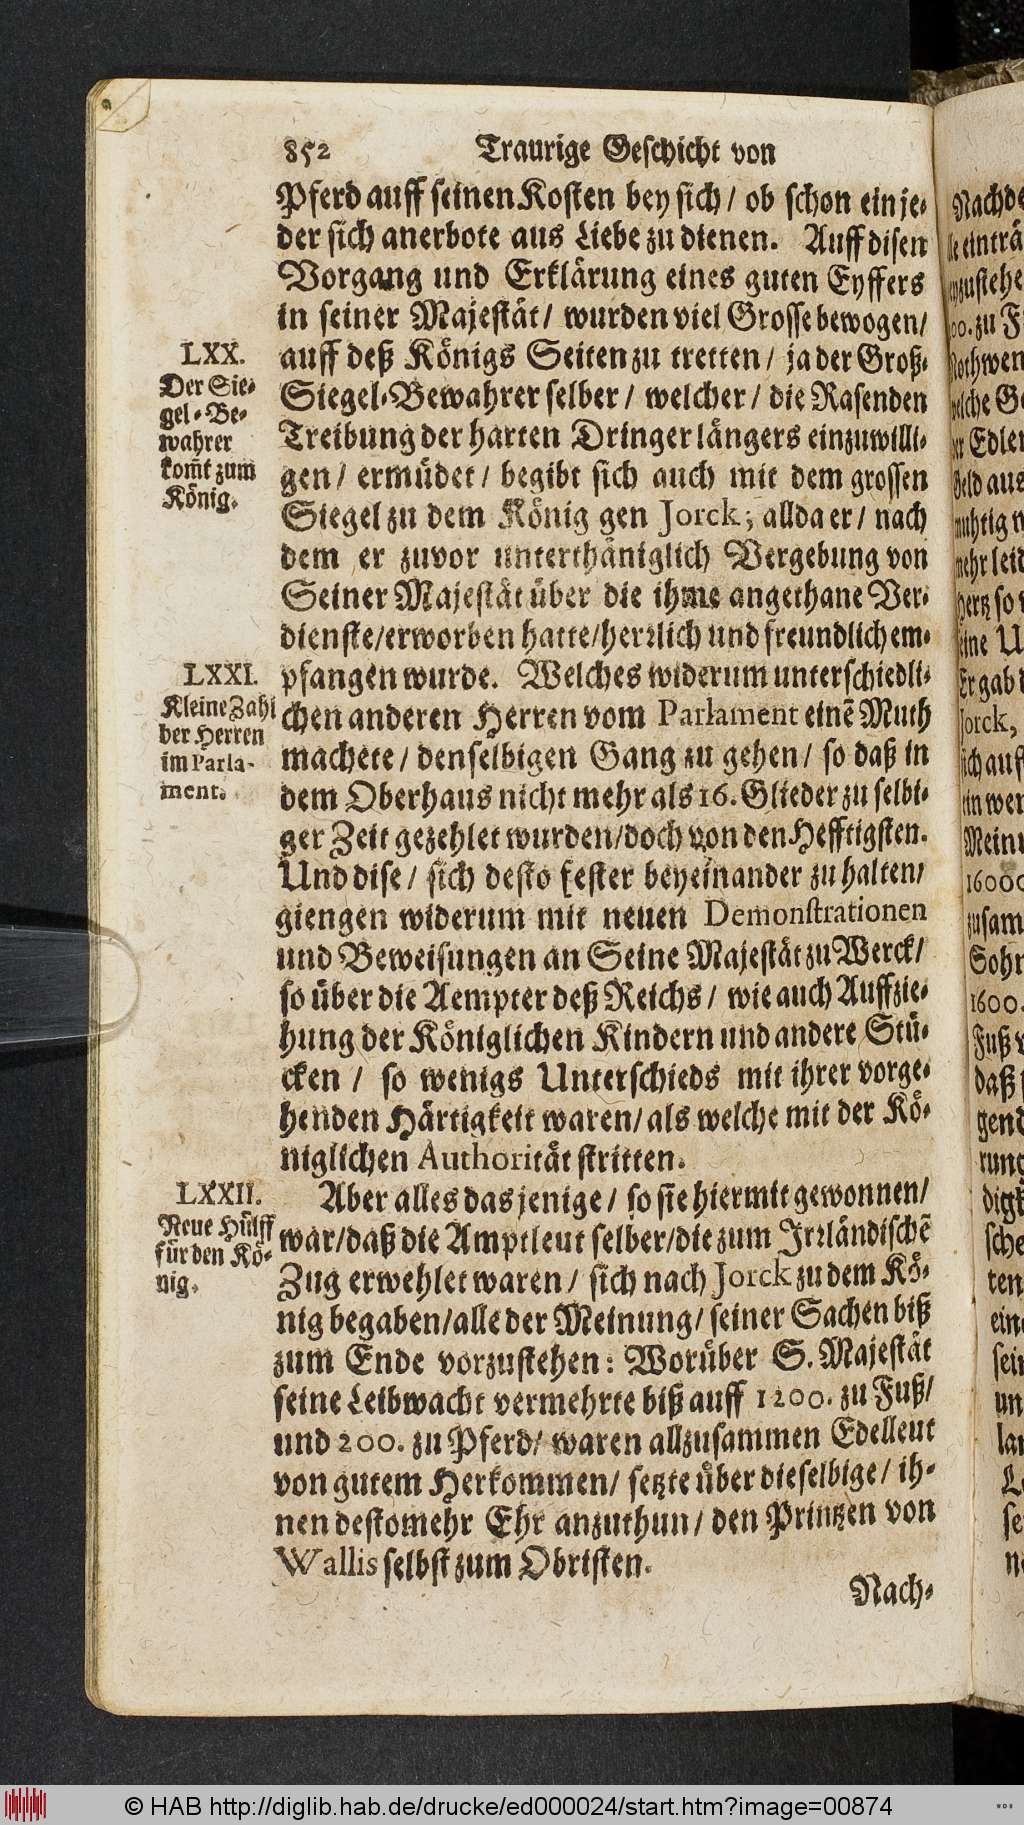 852 Traurige Geschicht von
Pferd auff seinen Kosten bey sich / ob schon ein je-
der sich anerbote aus Liebe zu dienen. Auff disen
Vorgang und Erklärung eines guten Eyffers
in seiner Majestät / wurden viel Grosse bewogen /
auff deß Königs Seiten zu tretten / ja der Groß-
Siegel-Bewahrer selber / welcher / die Rasenden
Treibung der harten Dringer längers einzuwilli-
gen / ermüdet / begibt sich auch mit dem grossen
Siegel zu dem König gen Jorck; allda er / nach
dem er zuvor unterthäniglich Vergebung von
Seiner Majestät über die ihme angethane Ver-
dienste / erworben hatte / hertzlich und freundlich em-
pfangen wurde. Welches widerum unterschiedli-
chen anderen Herren vom Parlament einẽ Muth
machete / denselbigen Gang zu gehen / so daß in
dem Oberhaus nicht mehr als 16. Glieder zu selbi-
ger Zeit gezehlet wurden / doch von den Hefftigsten.
Und dise / sich desto fester beyeinander zu halten /
giengen widerum mit neuen Demonstrationen
und Beweisungen an Seine Majestät zu Werck /
so über die Aempter deß Reichs / wie auch Auffzie-
hung der Königlichen Kindern und andere Stü-
cken / so wenigs Unterschieds mit ihrer vorge-
henden Härtigkeit waren / als welche mit der Kö-
niglichen Authorität stritten.
Aber alles das jenige / so sie hiermit gewonnen /
war / daß die Amptleut selber / die zum Irrländischẽ
Zug erwehlet waren / sich nach Jorck zu dem Kö-
nig begaben / alle der Meinung / seiner Sachen biß
zum Ende vorzustehen: Worüber S. Majestät
seine Leibwacht vermehrte biß auff 1200. zu Fuß /
und 200. zu Pferd / waren allzusammen Edelleut
von gutem Herkommen / setzte über dieselbige / ih-
nen destomehr Ehr anzuthun / den Printzen von
Wallis selbst zum Obristen.
Nach-
LXX.
Der Sie-
gel-Be-
wahrer
kom̃t zum
König.
LXXI.
Kleine Zahl
der Herren
im Parla-
ment.
LXXII.
Neue Hülff
für den Kö-
nig.
© HAB http://diglib.hab.de/drucke/ed000024/start.htm?image=00874